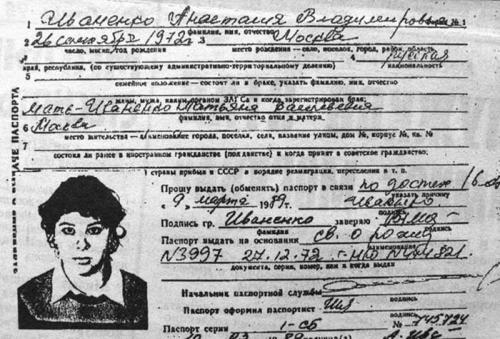 1 Иваненко Анастасия Владимировна
фамилия, имя, отчество
2 26 сентября 1972 г. 3 Москва
число, месяц, год рождения место рождения — село, поселок, город, район, область,
4 русская
край, республика, (по существующему административно-территориальному делению) национальность
5
семейное положение — состоит ли в браке, указать фамилию, имя, отчество
жены, мужа, каким органом ЗАГСа и когда зарегистрирован брак
Мать-Иваненко Татьяна Васильевна
фамилия, имя, отчество отца и матери
6 Москва
место жительства — наименование города, поселка, села, название улицы, дом №, корпус №, кв. №
7
состоял ли ранее в иностранном гражданстве (подданстве) и когда принят в советское гражданство,
страны прибыл в СССР в порядке репатриации, переселения и т. п.
ВЫДАЧЕ ПАСПОРТА
Прошу выдать (обменять) паспорт в связи по достиж 16
указать причину
« 9 » марта 1989 г.
подпись
Подпись гр. Иваненко заверяю
фамилия подпись
Паспорт выдать на основании св. о рожд
наименование
N3997 27.12.72
документа, серия, номер, кем и когда выдан
Начальник паспортной службы
подпись
Паспорт оформил паспортист
подпись
Паспорт серии I-СБ № 745724